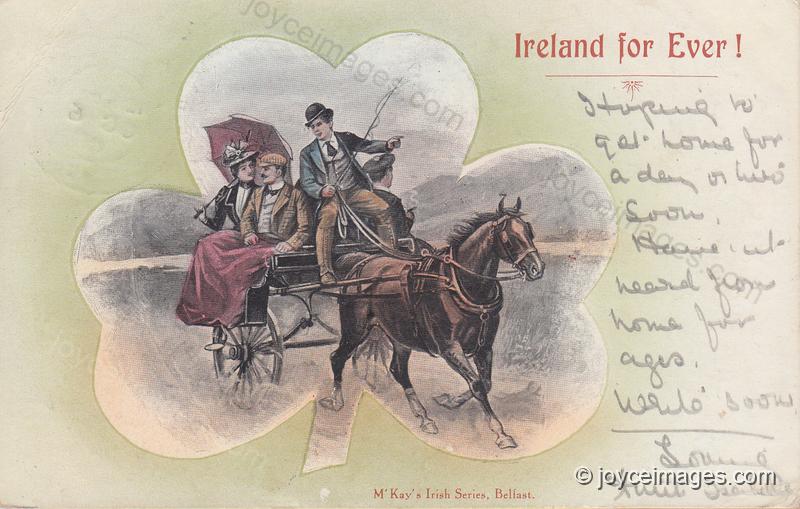 Ireland for Ever!
Hoping to
get home for
a day or two
soon.
Have n't
heard from
home for
ages.
Write soon
Loving
Aunt
M'Kay's Irish Series, Belfast.
© joyceimages.com
joyceimages.com
joyceimages.com